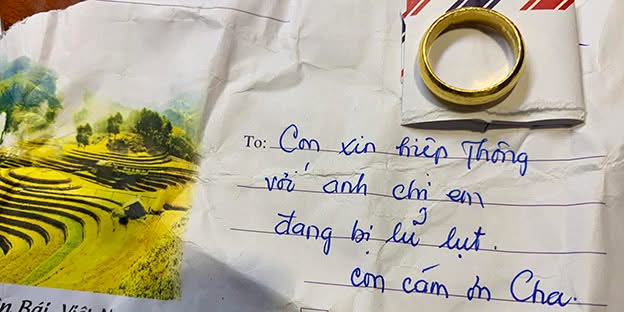 To: Con xin hiệp Thông
với anh chị em
đang bị lũ lụt.
con cám ơn Cha.
Bái, Việt N